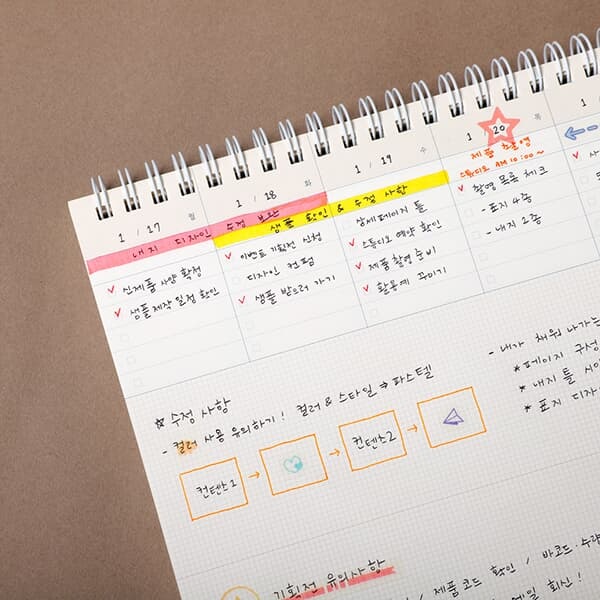 1 / 17 월
1 / 18 화
1 / 19 수
1 / 20 목
1 /
내지 디자인 수정 보완
샘플 확인 & 수정 사항
제품 촬영
스튜디오 AM 10:00~
신제품 사양 확정
샘플 제작 일정 확인
이벤트 기획전 신청
디자인 컨펌
샘플 받으러 가기
상세페이지 틀
스튜디오 예약 확인
제품 촬영 준비
활용예 꾸미기
촬영 목록 체크
- 표지 4종
- 내지 2종
☆ 수정 사항
- 컬러 사용 유의하기! 컬러 & 스타일 ⇒ 파스텔
컨텐츠1 → → 컨텐츠2 →
- 내가 채워 나가는
* 페이지 구성
* 내지 틀
* 표지 디자
기획전 유의사항
/ 제품코드 확인 / 바코드·수량
메일 회신!